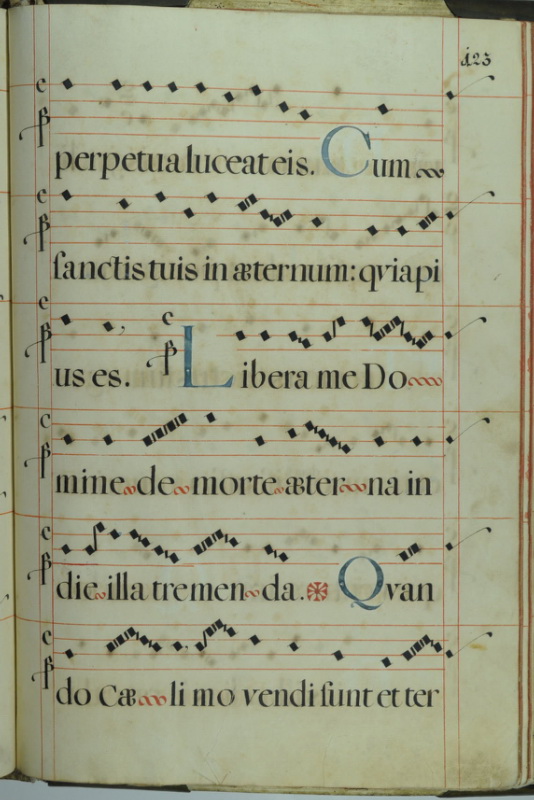 123
perpetua luceat eis. Cum
sanctis tuis in æternum: qvia pi
us es. Libera me Do
mine de morte æter na in
die illa tremen da. Qvan
do Cæ li mo vendi sunt et ter